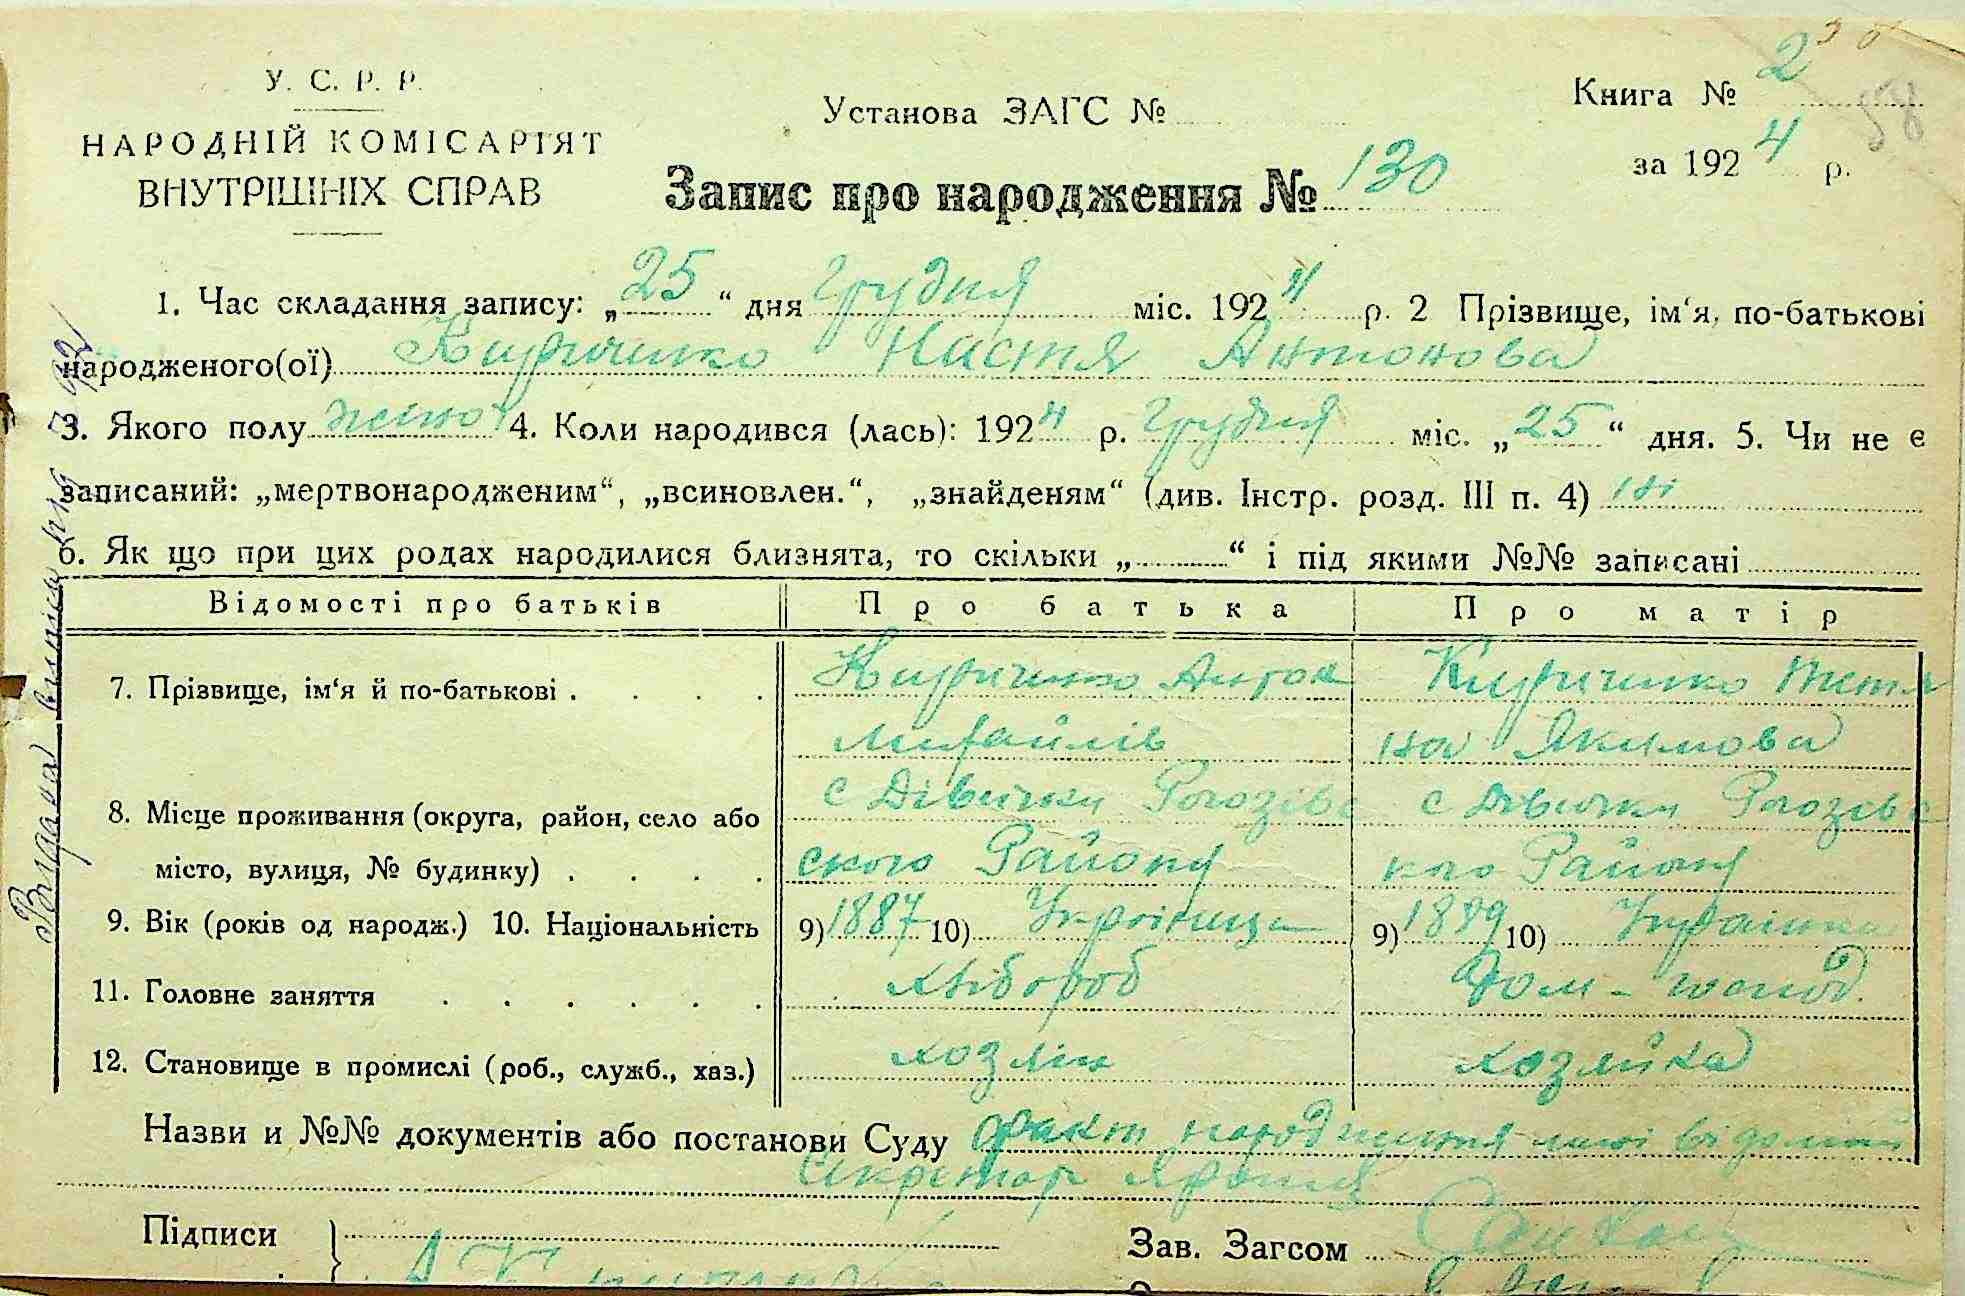 У. С. Р. Р.
НАРОДНІЙ КОМІСАРІЯТ
ВНУТРІШНІХ СПРАВ
Установа ЗАГС №
Книга № 2
за 1924 р.
58
Запис про народження № 130
1. Час складання запису: „25“ дня Грудня міс. 1924 р. 2 Прізвище, ім‘я, по-батькові
народженого(ої) Кириченко Настя Антонова
3. Якого полу жіно 4. Коли народився (лась): 1924 р. Грудня міс. „25“ дня. 5. Чи не є
записаний: „мертвонародженим“, „всиновлен.“, „знайденям“ (див. Інстр. розд. III п. 4) ні
6. Як що при цих родах народилися близнята, то скільки „ “ і під якими №№ записані
Відомості про батьків Про батька Про матір
7. Прізвище, ім‘я й по-батькові . . . . Кириченко Антон Кириченко Тетя
Михайлів на Якимова
8. Місце проживання (округа, район, село або с Дівички Рогозівс с Дівички Рогозівс
місто, вулиця, № будинку) . . . . ского Району кого Району
9. Вік (років од народж.) 10. Національність 9) 1887 10) Українець 9) 1889 10) Українка
11. Головне заняття . . . . . . хлібороб Дом-господ.
12. Становище в промислі (роб., служб., хаз.) хозяін хозяйка
Назви и №№ документів або постанови Суду факт народження мені відомий
Секретар
Підписи
Зав. Загсом
Видана виписка